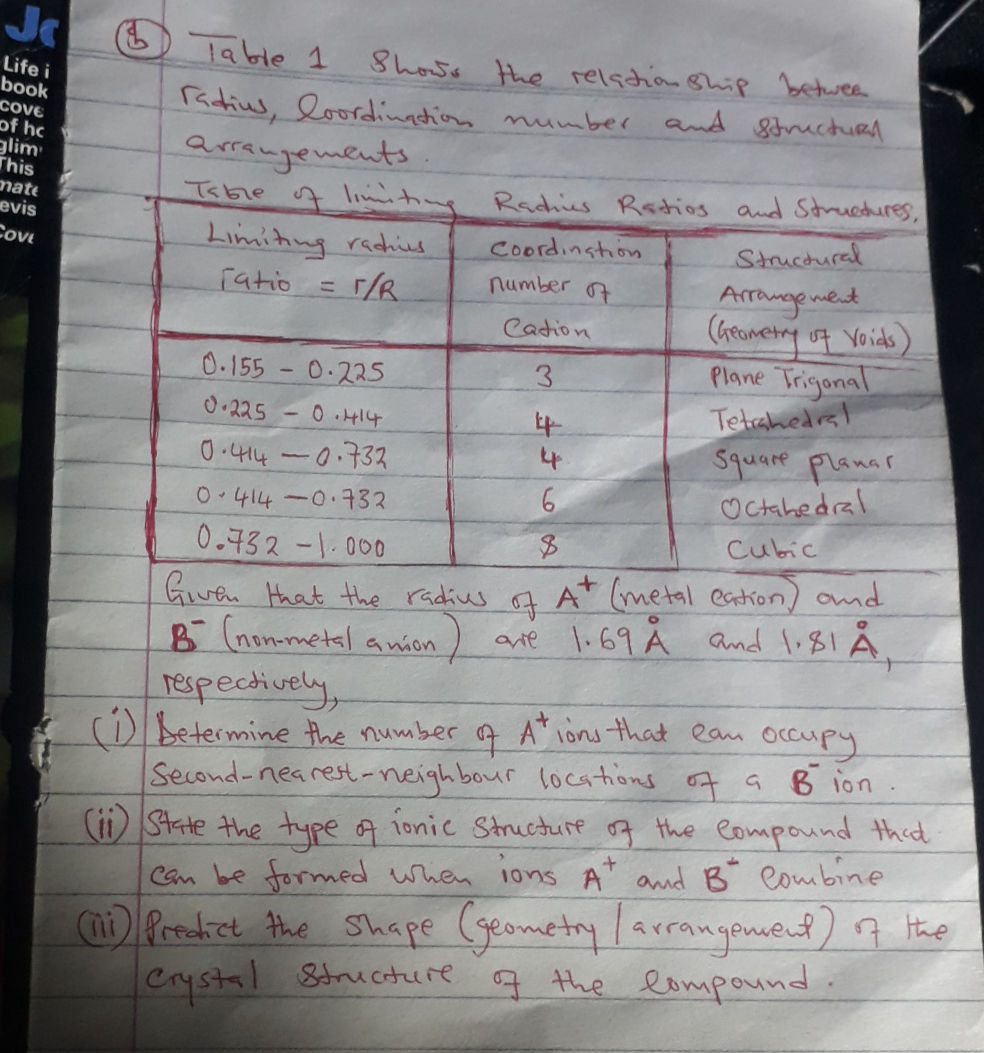 Jo
Life i
book
cove
of ho
glim
This
mate
evis
Cove
(b) Table 1 shows the relationship betwee
radius, Coordination number and structural
arrangements.
Table of limiting Radius Ratios and Structures.
Limiting radius ratio = r/R | Coordination number of Cation | Structural Arrangement (Geometry of Voids)
0.155 - 0.225 | 3 | Plane Trigonal
0.225 - 0.414 | 4 | Tetrahedral
0.414 - 0.732 | 4 | Square planar
0.414 - 0.732 | 6 | Octahedral
0.732 - 1.000 | 8 | Cubic
Given that the radius of A⁺ (metal cation) and
B⁻ (non-metal anion) are 1.69 Å and 1.81 Å,
respectively,
(i) Determine the number of A⁺ ions that can occupy
Second-nearest-neighbour locations of a B⁻ ion.
(ii) State the type of ionic structure of the compound that
can be formed when ions A⁺ and B⁻ Combine
(iii) Predict the shape (geometry / arrangement) of the
crystal structure of the compound.